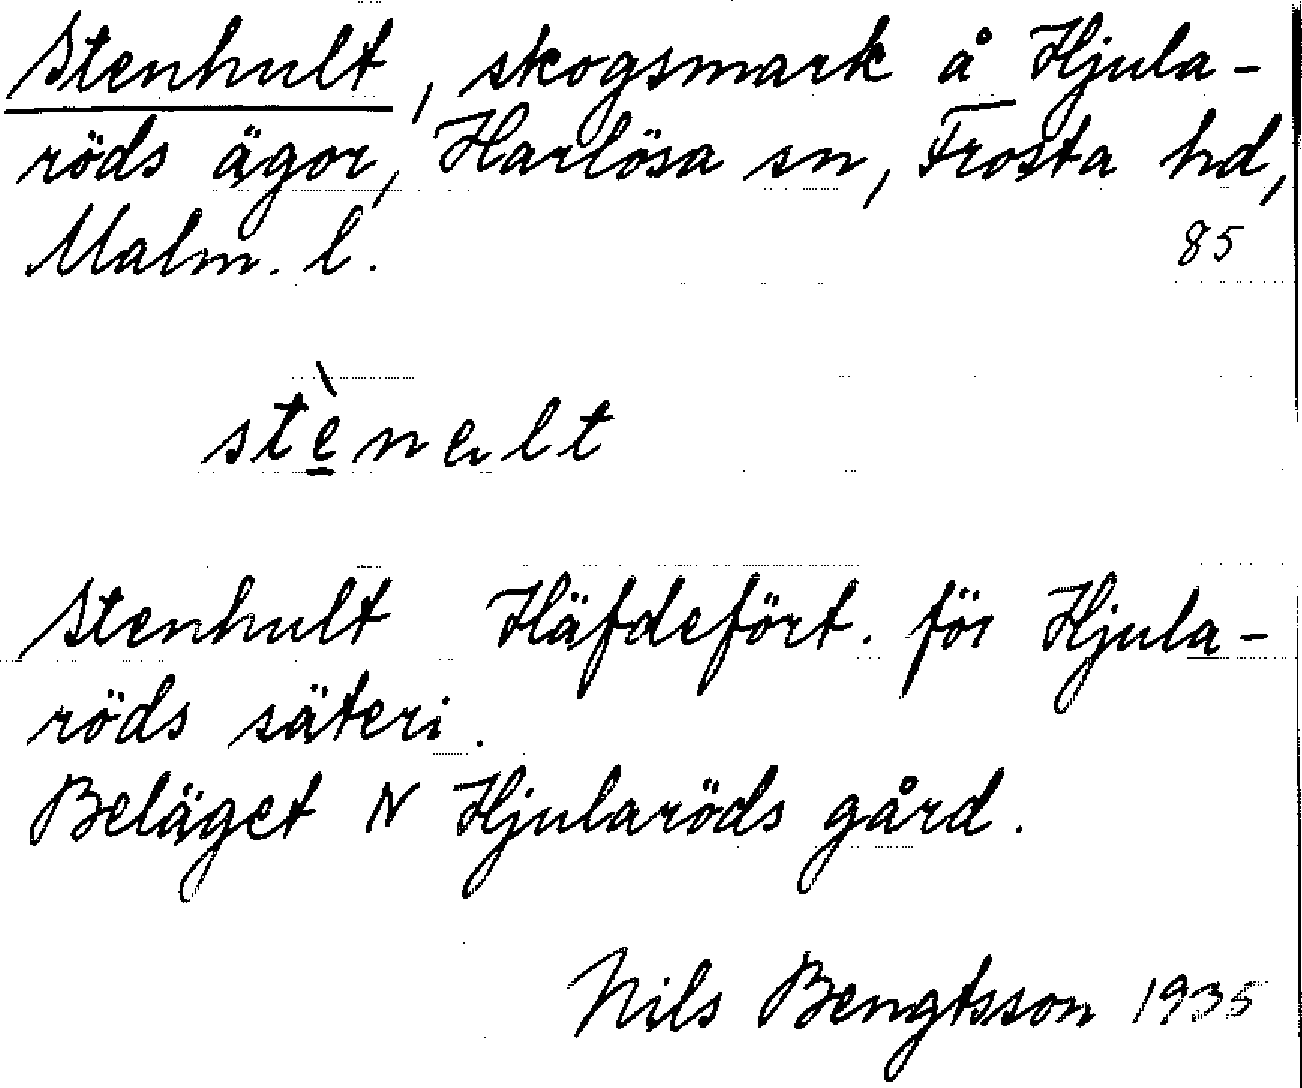 Stenhult, skogsmark å Hjula-
röds ägor, Harlösa sn, Frosta hd,
Malm. l. 85
stè̱nelt
Stenhult Häfdefört. för Hjula-
röds säteri.
Beläget N Hjularöds gård.
Nils Bengtsson 1935